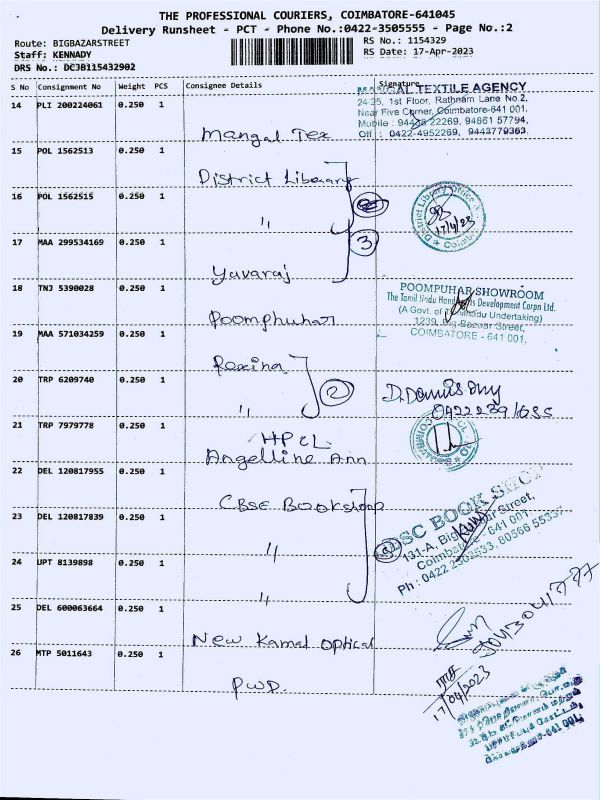 THE PROFESSIONAL COURIERS, COIMBATORE-641045
Delivery Runsheet - PCT - Phone No.:0422-3505555 - Page No.:2
Route: BIGBAZARSTREET
RS No.: 1154329
Staff: KENNADY
RS Date: 17-Apr-2023
DRS No.: DCJB115432902
S No Consignment No Weight PCS Consignee Details Signature
14 PLI 200224061 0.250 1
MANGAL TEXTILE AGENCY
24-25, 1st Floor, Rathnam Lane No.2,
Near Five Corner, Coimbatore-641 001.
Mobile : 94438 22269, 94861 57794,
Off : 0422-4952269, 9443779363
Mangal Tex
15 POL 1562513 0.250 1
District Library
16 POL 1562515 0.250 1
"
District Library Office
17/4/23
17 MAA 299534169 0.250 1
3
Yuvaraj
18 TNJ 5390028 0.250 1
Poomphuhar
POOMPUHAR SHOWROOM
The Tamil Nadu Handicrafts Development Corpn Ltd.
(A Govt. of Tamilnadu Undertaking)
1239, Big Bazaar Street,
COIMBATORE - 641 001.
19 MAA 571034259 0.250 1
Rexina
20 TRP 6209740 0.250 1
"
2
21 TRP 7979778 0.250 1
HPCL
Angelline Ann
22 DEL 120817955 0.250 1
CBSE Bookshop
23 DEL 120817839 0.250 1
"
BOOK SHOP
131-A, Big Bazaar Street,
Coimbatore - 641 001.
24 UPT 8139898 0.250 1
"
25 DEL 600063664 0.250 1
New Kamal Optical
26 MTP 5011643 0.250 1
PWD.
17/04/2023